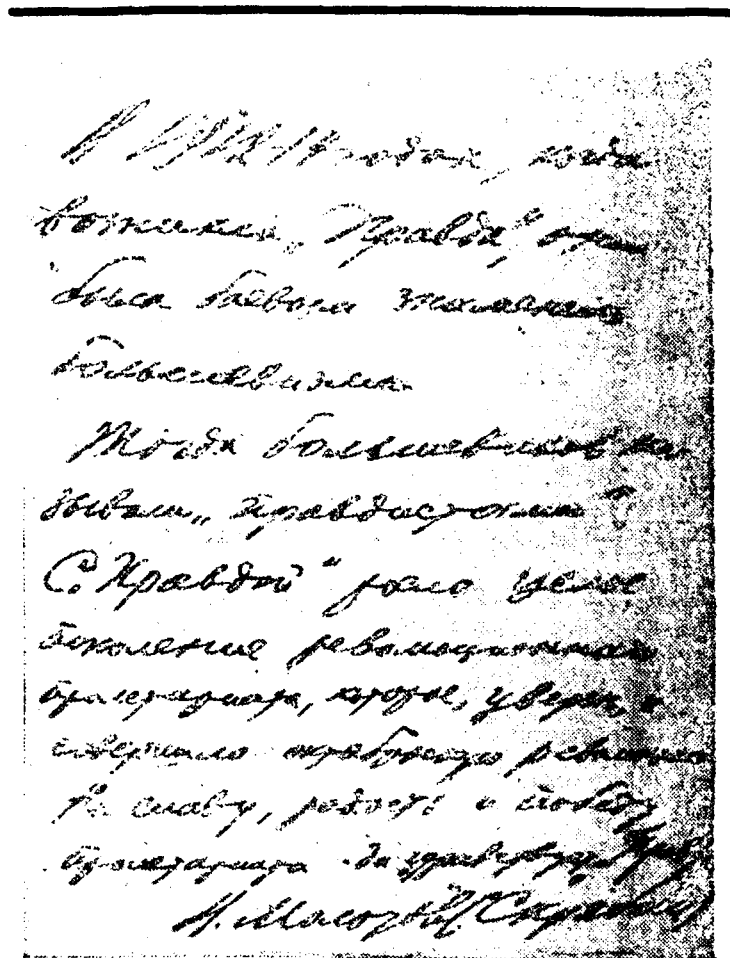 В 1912-14 годах, когда
возникла „Правда", она
была боевым знаменем
большевизма.
Тогда большевиков на-
зывали „правдистами"
С „Правдой" росло целое
поколение революционного
пролетариата, которое, уверен, и
совершило октябрьскую революцию
На славу, радость и победу
пролетариата Да здравствует „Правда"